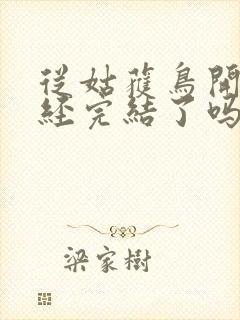 從姑蒦鳥開
經完結了嗎
梁家樹